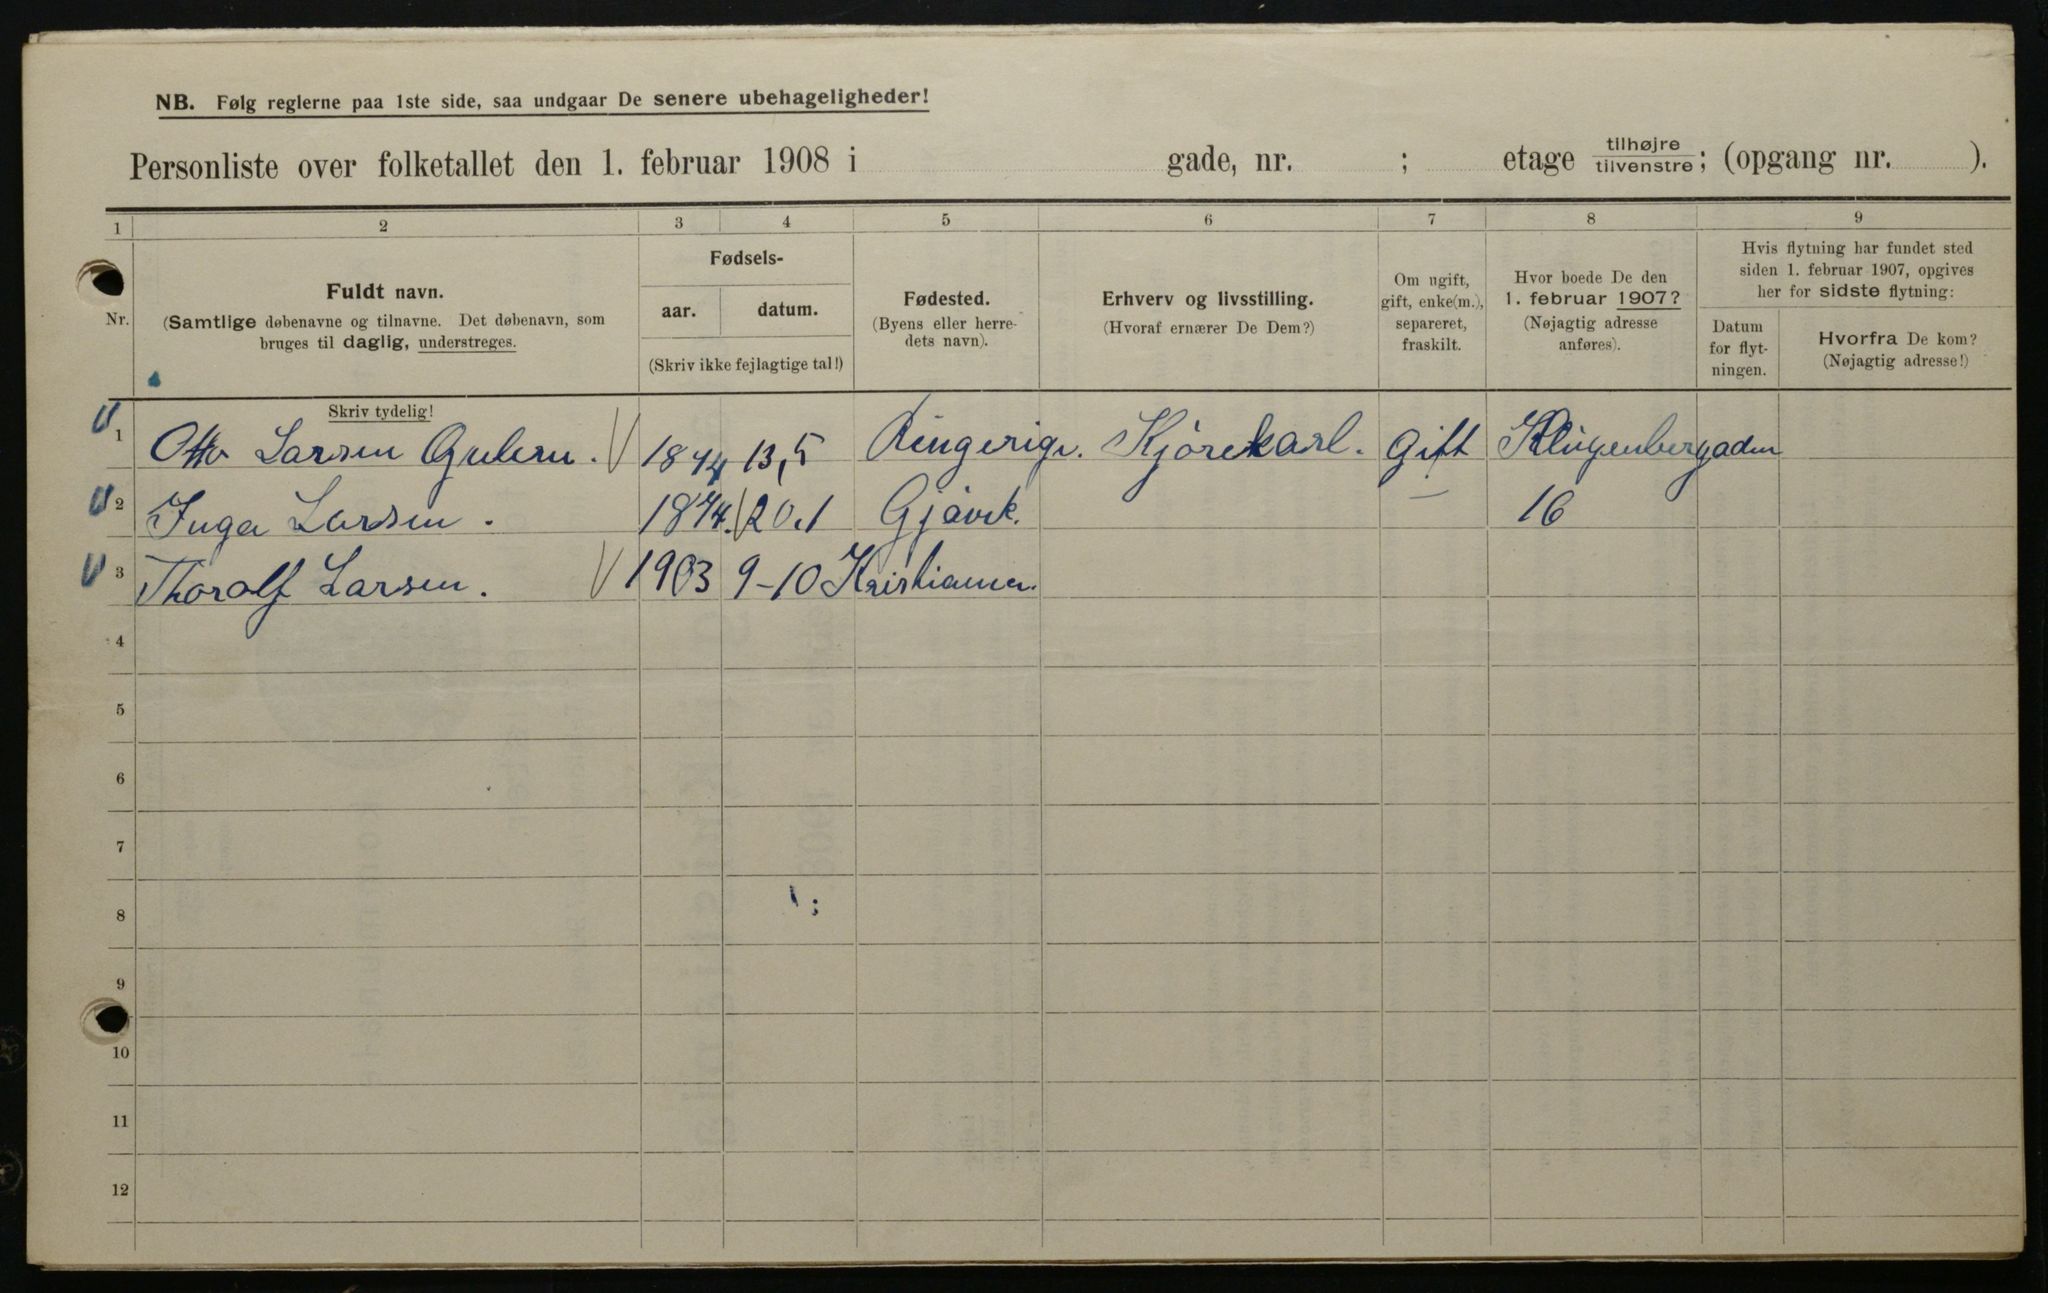 NB. Følg reglerne paa 1ste side, saa undgaar De senere ubehageligheder!
Personliste over folketallet den 1. februar 1908 i gade, nr. ; etage tilhøjre/tilvenstre; (opgang nr. ).
1 2 3 4 5 6 7 8 9
Nr.
Fuldt navn.
(Samtlige døbenavne og tilnavne. Det døbenavn, som
bruges til daglig, understreges.
Fødsels-
aar. datum.
(Skriv ikke fejlagtige tal!)
Fødested.
(Byens eller herre-
dets navn).
Erhverv og livsstilling.
(Hvoraf ernærer De Dem?)
Om ugift,
gift, enke(m.),
separeret,
fraskilt.
Hvor boede De den
1. februar 1907?
(Nøjagtig adresse
anføres).
Hvis flytning har fundet sted
siden 1. februar 1907, opgives
her for sidste flytning:
Datum
for flyt-
ningen.
Hvorfra De kom?
(Nøjagtig adresse!)
Skriv tydelig!
1 Otto Larsen 1874 13,5 Ringerige. Kjørekarl. Gift Klingenberggaden
2 Inga Larsen. 1874. 20.1 Gjøvik. — 16
3 Thoralf Larsen. 1903 9-10 Kristiania.
4
5
6
7
8
9
10
11
12